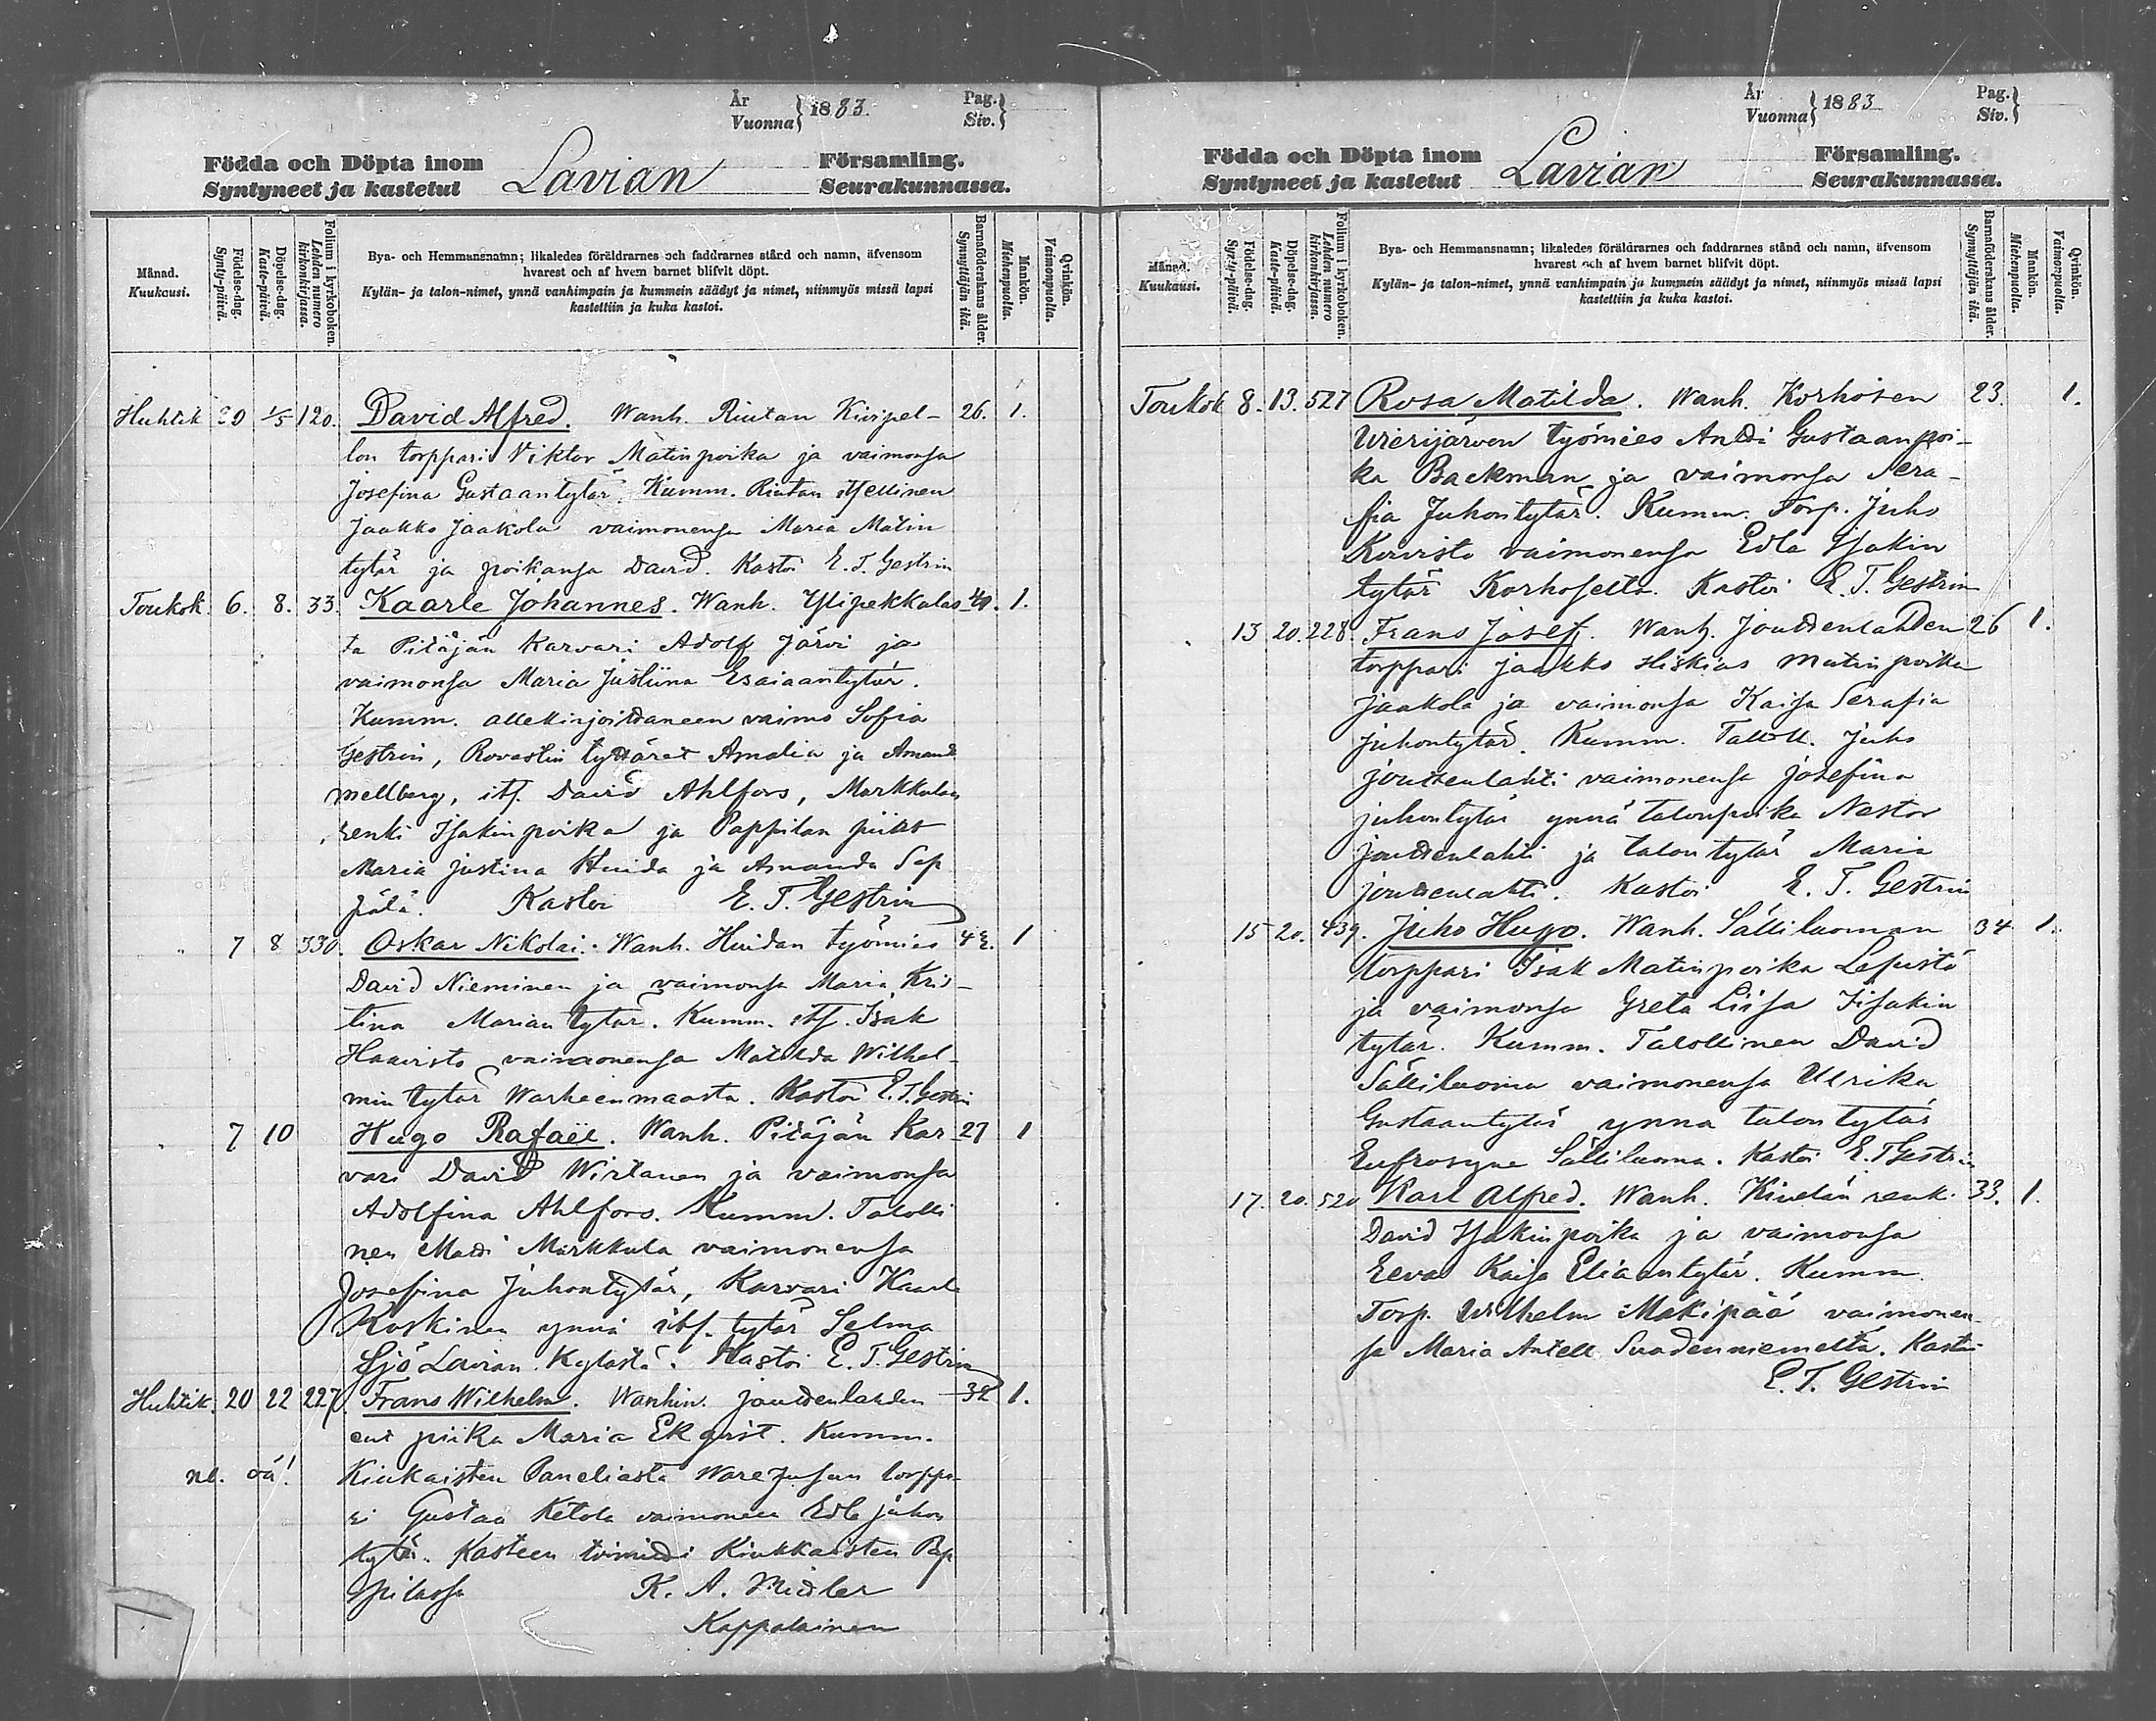 År
Vuonna } 1883.
Pag.
Siv. }
Födda och Döpta inom
Syntyneet ja kastetut
Lavian
Församling.
Seurakunnassa.
Månad.
Kuukausi.
Födelse-dag.
Synty-päivä.
Döpelse-dag.
Kaste-päivä.
Folium i kyrkoboken.
Lehden numero kirkonkirjassa.
Bya- och Hemmansnamn; likaledes föräldrarnes och faddrarnes stånd och namn, äfvensom
hvarest och af hvem barnet blifvit döpt.
Kylän- ja talon-nimet, ynnä vanhimpain ja kummein säädyt ja nimet, niinmyös missä lapsi
kastettiin ja kuka kastoi.
Barnaföderskans ålder.
Synnyttäjän ikä.
Mankön.
Miehenpuolta.
Qvinkön.
Vaimonpuolta.
Huhtik 30 1/5 120. David Alfred. Wanh. Riutan Kivipel- 26. 1.
lon torppari Viktor Matinpoika ja vaimonsa
Josefina Gustaantytär. Kumm. Riutan itsellinen
Jaakko Jaakola vaimonensa Maria Matin
tytär ja poikansa David. Kastoi E. T. Gestrin
Toukok. 6. 8. 33. Kaarle Johannes. Wanh. Ylipekkalas- 40. 1.
ta Pitäjän Karvari Adolf Järvi ja
vaimonsa Maria Justiina Esaiaantytär.
Kumm. allekirjoittaneen vaimo Sofia
Gestrin, Rovastin tyttäret Amalia ja Amanda
Mellberg, its. David Ahlfors, Markkulan
renki Isakinpoika ja Pappilan piiat
Maria Justina Huida ja Amanda Sep
pälä. Kastoi E. T. Gestrin
" 7 8 330. Oskar Nikolai. Wanh. Huidan työmies 42. 1
David Nieminen ja vaimonsa Maria Kris-
tina Mariantytär. Kumm. its. Isak
Haavisto vaimonensa Matilda Wilhel-
min tytär Warheenmaasta. Kastoi E. T. Gestrin
" 7 10 Hugo Rafaël. Wanh. Pitäjän Kar 27 1
vari David Wirtanen ja vaimonsa
Adolfina Ahlfors. Kumm. Talolli
nen Matti Markkula vaimonensa
Josefina Juhontytär, Karvari Kaarle
Koskinen ynnä its. tytär Selma
Sjö Lavian kylästä. Kastoi E. T. Gestrin
Huhtik. 20 22 227. Frans Wilhelm. Wanhin. Jouttenlahden 32 1.
ent piika Maria Ekqvist. Kumm.
Kiukaisten Paneliasta torppa-
ri Gustaa Ketola vaimoneen Edla Juhon
tytär. Kasteen toimitti Kiukkaisten Pap
pilassa K. A. Midler
Kappalainen
År
Vuonna } 1883
Pag.
Siv. }
Födda och Döpta inom
Syntyneet ja kastetut
Lavian
Församling.
Seurakunnassa.
Månad.
Kuukausi.
Födelse-dag.
Synty-päivä.
Döpelse-dag.
Kaste-päivä.
Folium i kyrkoboken.
Lehden numero kirkonkirjassa.
Bya- och Hemmansnamn; likaledes föräldrarnes och faddrarnes stånd och namn, äfvensom
hvarest och af hvem barnet blifvit döpt.
Kylän- ja talon-nimet, ynnä vanhimpain ja kummein säädyt ja nimet, niinmyös missä lapsi
kastettiin ja kuka kastoi.
Barnaföderskans ålder.
Synnyttäjän ikä.
Mankön.
Miehenpuolta.
Qvinkön.
Vaimonpuolta.
Toukok 8. 13. 527 Rosa Matilda. Wanh. Korhosen 23. 1.
Wierijärven työmies Antti Gustaanpoi-
ka Backman ja vaimonsa Sera-
fia Juhontytär. Kumm. Torp. Juho
Koivisto vaimonensa Edla Isakin
tytär Korhoselta. Kastoi E. T. Gestrin
13 20. 228. Frans Josef. Wanh. Jouttenlahden 26 1.
torppari Jaakko Hiskias Matinpoika
Jaakola ja vaimonsa Kaisa Serafia
Juhontytär. Kumm. Taloll. Juho
Jouttenlahti vaimonensa Josefina
Juhontytär ynnä talonpoika Nestor
Jouttenlahti ja talon tytär Maria
Jouttenlahti. Kastoi E. T. Gestrin
15 20. 439. Juho Hugo. Wanh. Sälliluoman 34 1.
torppari Isak Matinpoika Lepistö
ja vaimonsa Greta Liisa Iisakin
tytär. Kumm. Talollinen David
Sälliluoma vaimonensa Ulrika
Gustaantytär ynnä talon tytär
Eufrosyne Sälliluoma. Kastoi E. T Gestrin
17. 20. 520 Karl Alfred. Wanh. renk. 33. 1.
David Isakinpoika ja vaimonsa
Eeva Kaisa Eliaantytär. Kumm.
Torp. Wilhelm Mäkipää vaimonen-
sa Maria Antell Suodenniemeltä. Kastoi
E. T. Gestrin